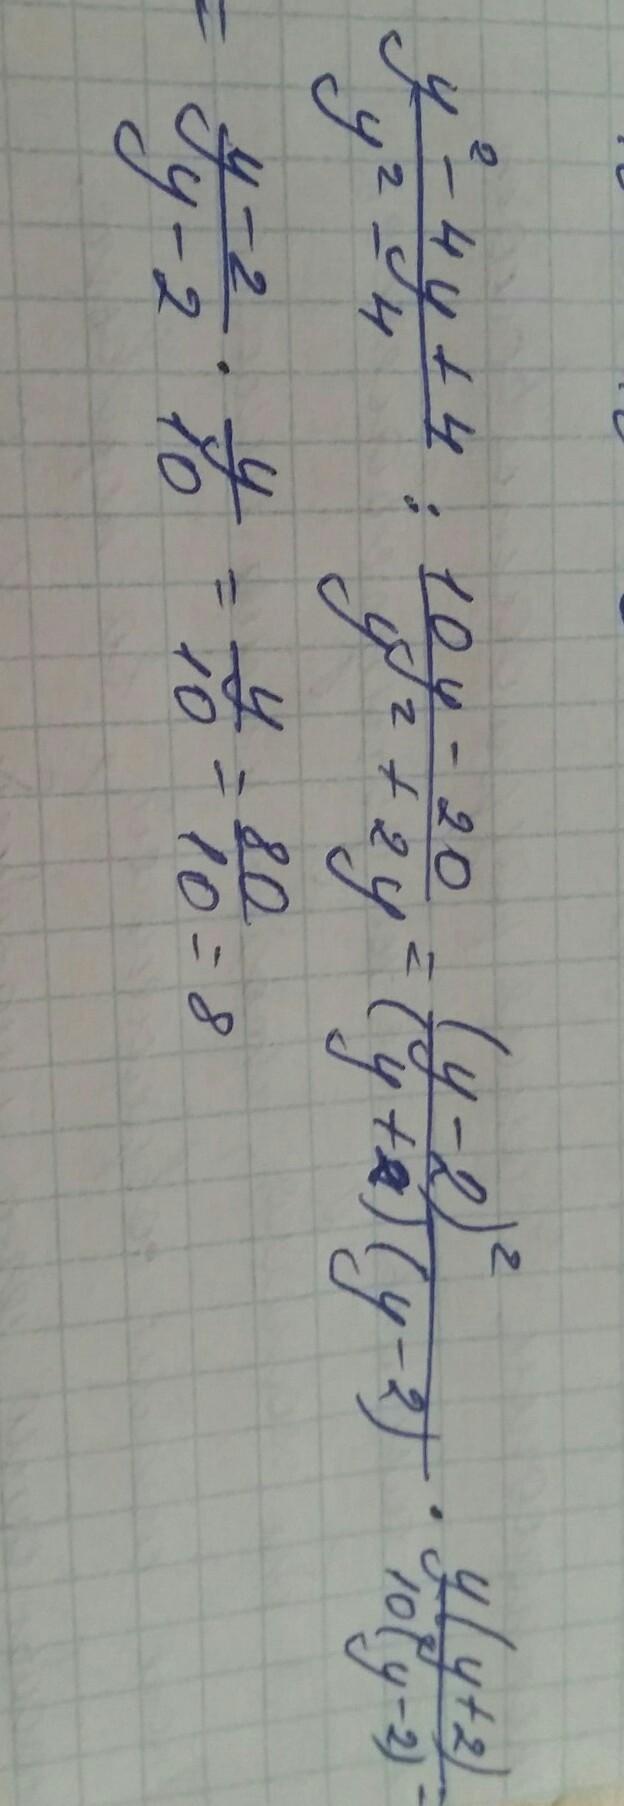 y² - 4y + 4 / y² - 4 : 10y - 20 / y² + 2y = (y - 2)² / (y + 2)(y - 2) · y(y + 2) / 10(y - 2) =
= y - 2 / y - 2 · y / 10 = y / 10 = 80 / 10 = 8